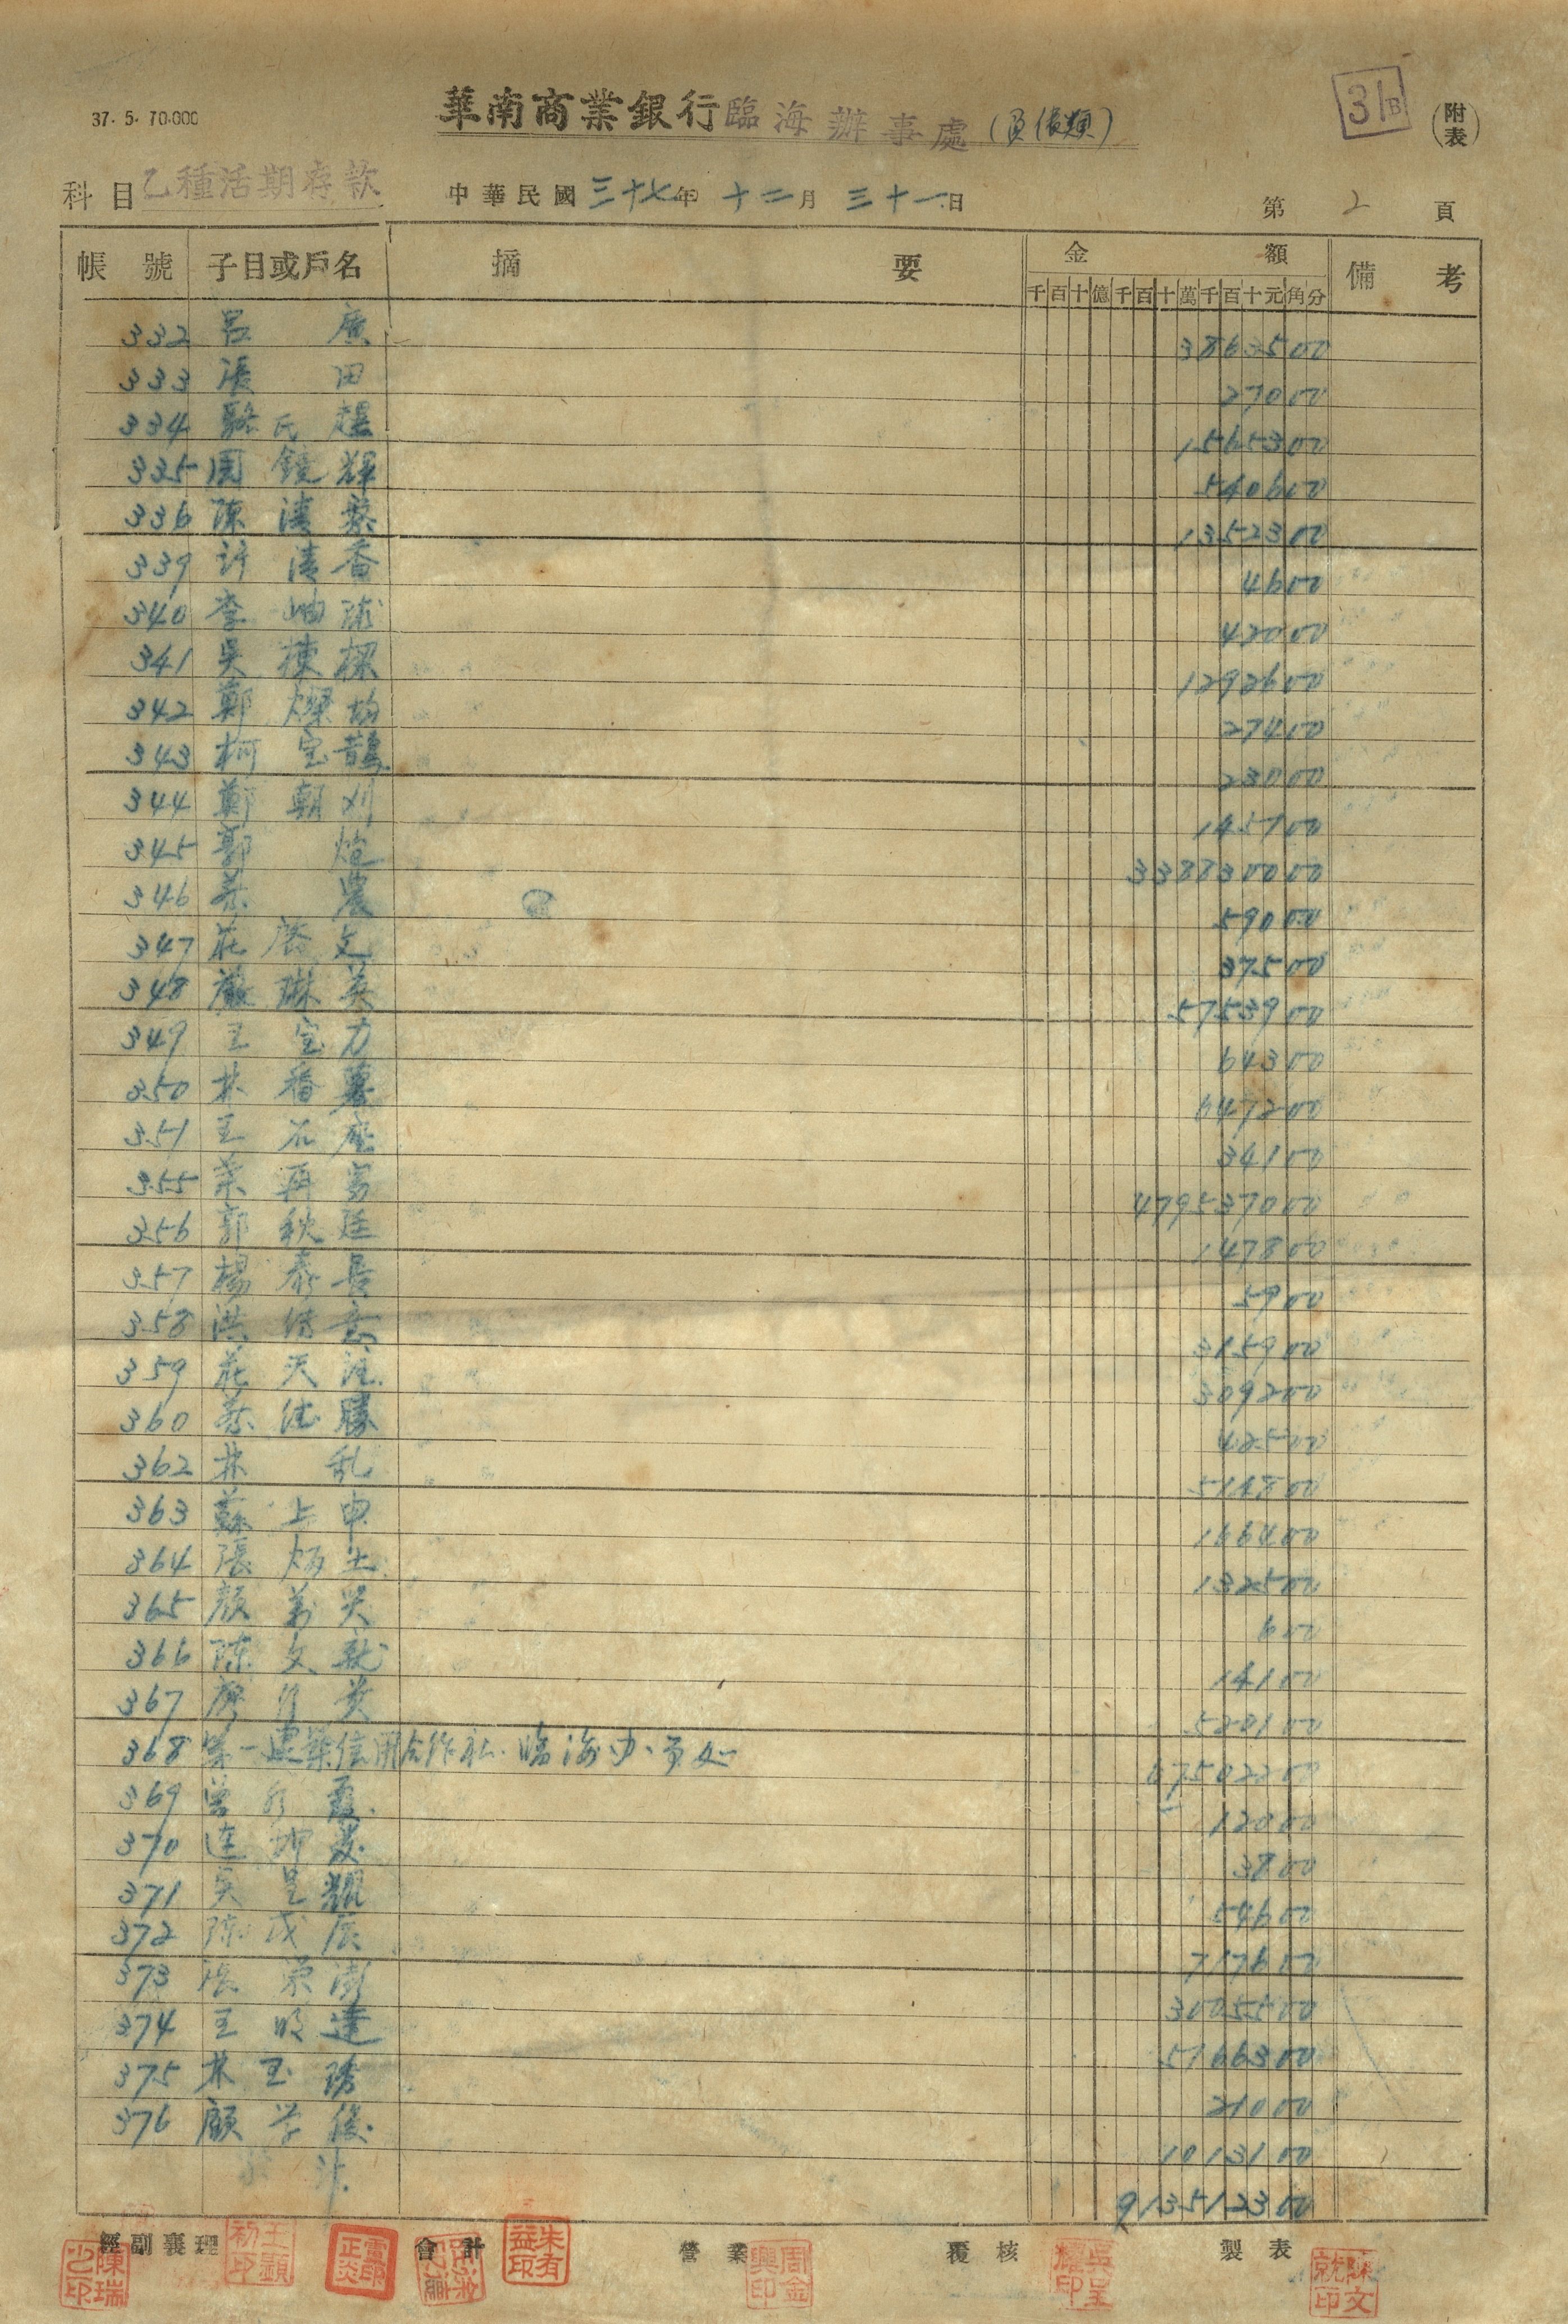 37. 5. 70.000
華南商業銀行臨海辦事處(負債類)
31B
(附表)
科目 乙種活期存款 中華民國三十七年十二月三十一日 第2頁
帳號 子目或戶名 摘要 金額 備考
千百十億千百十萬千百十元角分
332 呂 廣 3863500
333 張 田 27000
334 駱氏 1565300
335 周鏡輝 540600
336 陳清 1352300
339 許清香 4600
340 李 42000
341 吳棟樑 1292600
342 鄭燦均 27400
343 柯宝鵲 23000
344 鄭朝刈 145700
345 郭 炮 338830000
346 蔡 農 59000
347 莊啓文 37500
348 嚴琳英 5753900
349 王宝力 64300
350 林番薯 647200
351 王石座 34100
355 葉再 479537000
356 郭秋廷 147800
357 楊泰長 5900
358 洪 315900
359 莊天注 309200
360 蔡 勝 42500
362 林 乱 514800
363 蘇上申 166400
364 張炳土 132500
365 顏 600
366 陳文就 14100
367 廖 520100
368 第一建築信用合作社臨海办事处 67502200
369 曾 12000
370 連坤 3800
371 吳呈耀 54600
372 陳戊辰 717600
373 張 3005500
374 王明達 5166300
375 林玉琇 21000
376 顧学俊 1013100
913512300
經副襄理 會計 營業 覆核 製表
王顯初印
朱有益印
周金興印
吳呈耀印
陳文就印